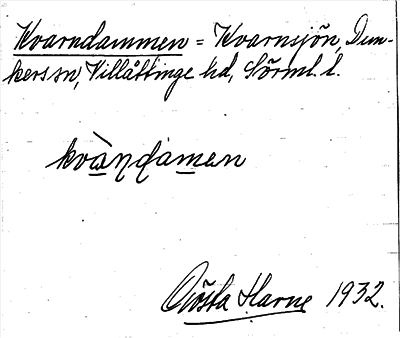 Kvarndammen = Kvarnsjön, Dun-
kers sn, Villåttinge hd, Sörml. l.
kvàṇḍamen
Gösta Harne 1932.